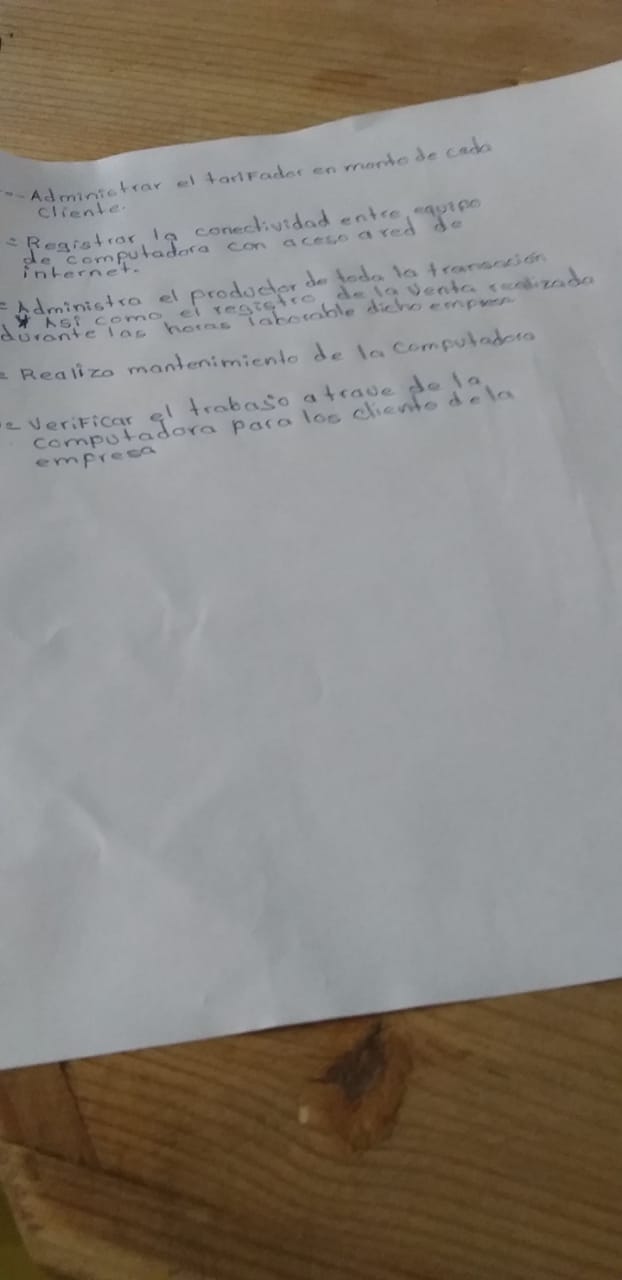 - Administrar el tarifador en monto de cada
cliente.
= Registrar la conectividad entre equipo
de computadora con aceso a red de
internet.
= Administra el productor de toda la transación
y Así como el registro de la venta realizada
durante las horas laborable dicho empresa
= Realiza mantenimiento de la computadora
= Verificar el trabaso atrave de la
computadora para los cliente dela
empresa